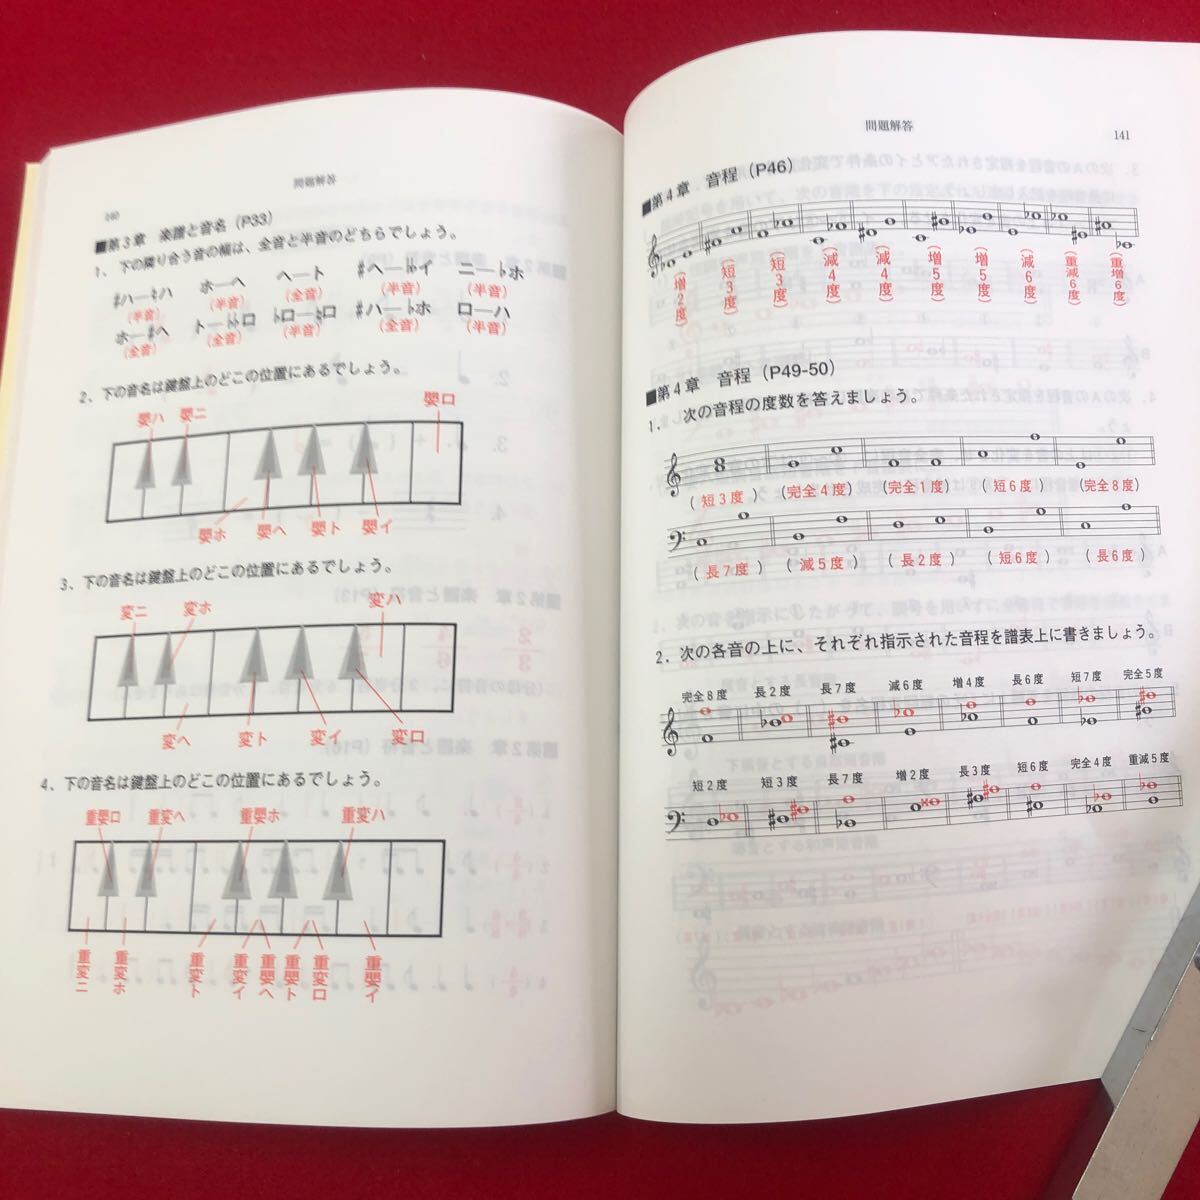 問題解答
140
■第3章　楽譜と音名（P33）
1、下の隣り合う音の幅は、全音と半音のどちらでしょう。
♯ハ—♮ハ　ホ—ヘ　ヘ—ト　♯ヘ—♭♭イ　ニ—♭ホ
（半音）　（半音）　（全音）　（半音）　（半音）
ホ—♯ヘ　ト—♭♭ロ　♭ロ—♮ロ　♯ハ—♭ホ　ロ—ハ
（全音）　（全音）　（半音）　（全音）　（半音）
2、下の音名は鍵盤上のどこの位置にあるでしょう。
嬰ハ　嬰ニ　嬰ロ
嬰ホ　嬰ヘ　嬰ト　嬰イ
3、下の音名は鍵盤上のどこの位置にあるでしょう。
変ニ　変ホ　変ハ
変ヘ　変ト　変イ　変ロ
4、下の音名は鍵盤上のどこの位置にあるでしょう。
重嬰ロ　重変ヘ　重嬰ホ　重変ハ
重変ニ　重変ホ　重変ト　重変イ　重嬰ヘ　重嬰ト　重変ロ　重嬰イ
問題解答
141
■第4章　音程（P46）
（増2度）　（短3度）　（短3度）　（減4度）　（減4度）　（増5度）　（増5度）　（減6度）　（重減6度）　（重増6度）
■第4章　音程（P49-50）
1、次の音程の度数を答えましょう。
（短3度）　（完全4度）　（完全1度）　（短6度）　（完全8度）
（長7度）　（減5度）　（長2度）　（短6度）　（長6度）
2．次の各音の上に、それぞれ指示された音程を譜表上に書きましょう。
完全8度　長2度　長7度　減6度　増4度　長6度　短7度　完全5度
短2度　短3度　長7度　増2度　長3度　短6度　完全4度　重減5度